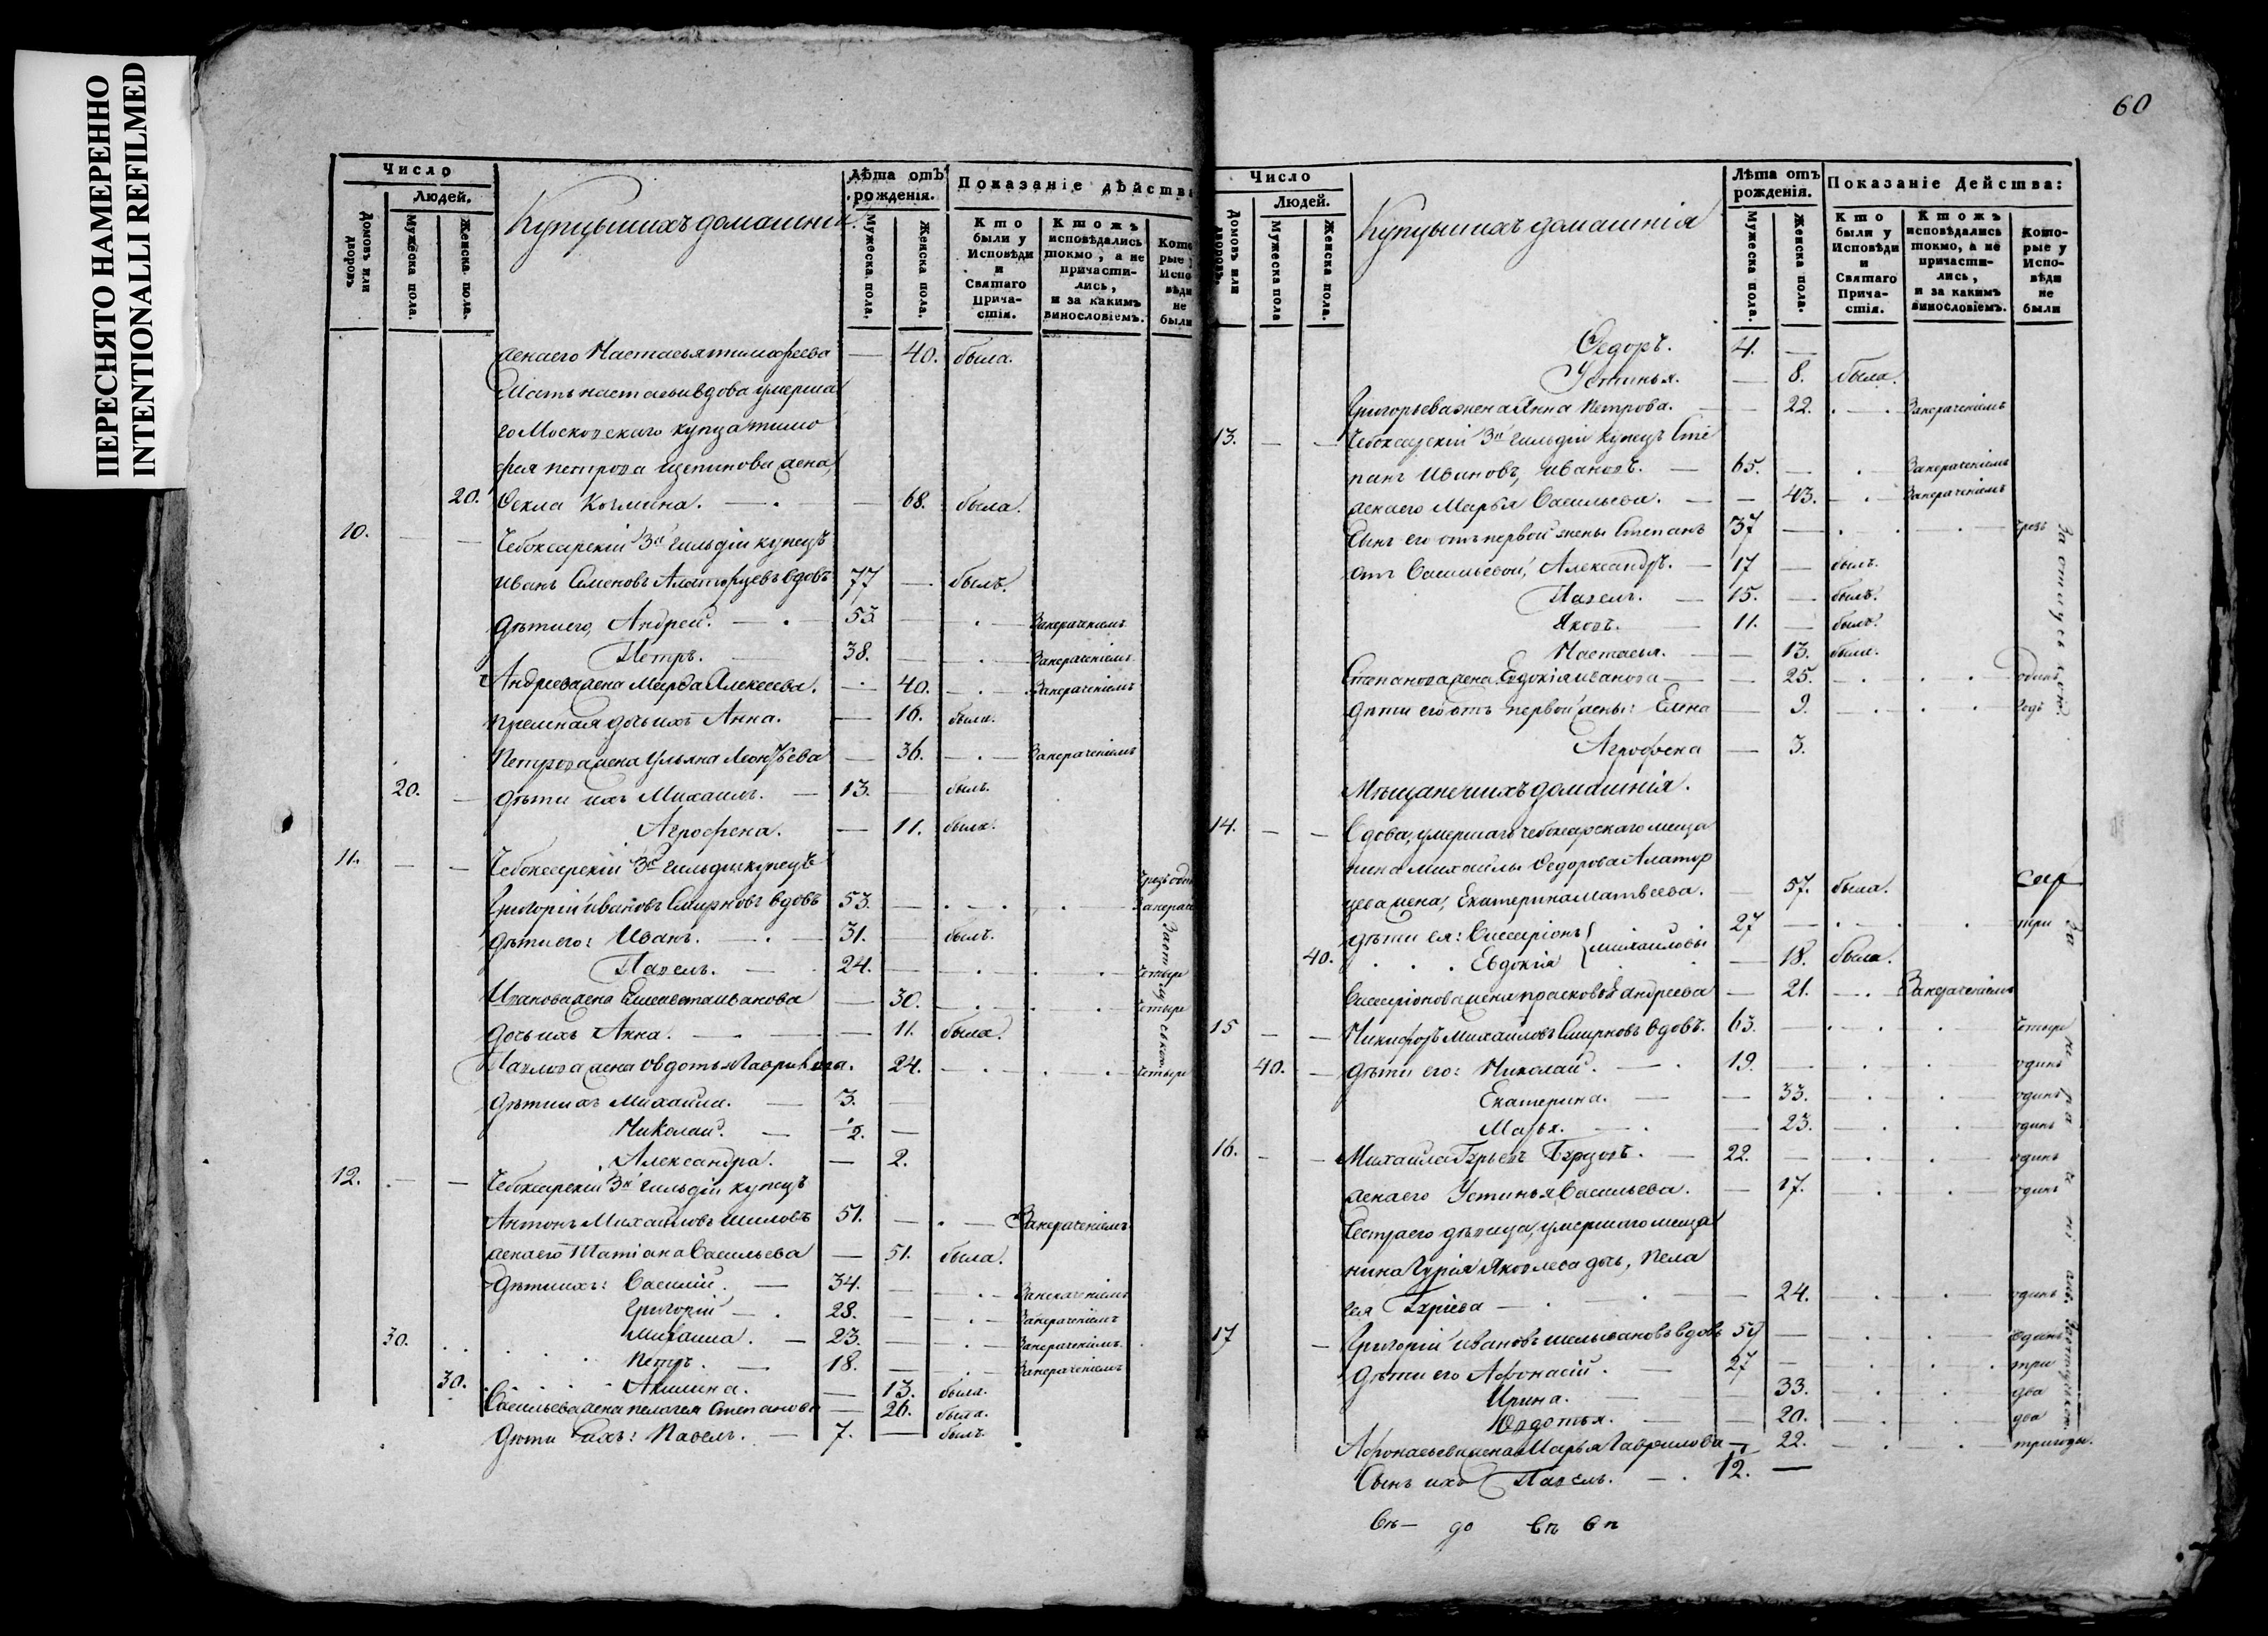 ПЕРЕСНЯТО НАМЕРЕННО
INTENTIONALLI REFILMED
Число
Людей.
Домовъ или дворовъ
Мужеска пола.
Женска пола.
Купцы и ихъ домашнии
Лѣта отъ рожденія.
Мужеска пола.
Женска пола.
Показаніе дѣйств
Кто были у Исповѣди и Святаго Прича-стія.
Ктожъ исповѣдались токмо, а не причасти-лись, и за какимъ винословіемъ.
Кото рые у Испо вѣди не были
жена его Настасья тимофеева — 40. была.
Мать настасьи вдова умерша
го Московскаго купца тимо
фея петрова щепинова жена,
20. Фекла Козмина. — 68. была.
10. — — Чебоксарскій 3й гильдіи купецъ
иванъ Семеновъ Алатырцевъ вдовъ 77 — былъ.
дѣти его, Андрей. — 53. — Занераченіемъ
Петръ. 38. — Занераченіемъ
Андреева жена Марѳа Алексеева. — 40. — Занераченіемъ
приемная дочь ихъ Анна. — 16. была.
Петрова жена Ульяна Леонтьева — 36. — Занераченіемъ
20. — дѣти ихъ Михаилъ. — 13. — былъ.
Агрофена. — 11. была.
11. — — Чебоксарскій 3й гильдіи купецъ
Григорій ивановъ Смирновъ вдовъ 53. —
дѣти его: Иванъ. — 31. — былъ.
Павелъ. — 24. — четыре
Иванова жена Елисавета иванова — 30. — четыре
дочь ихъ Анна. — 11. была.
Павлова жена Овдотья Гаврилова. 24. — четыре
дѣти ихъ Михаила. — 3. —
Николай. — 2. —
Александра. — 2.
12. — — Чебоксарскій 3й гильдіи купецъ
Антонъ Михайловъ шиловъ 51. — Занераченіемъ
жена его Татіана Васильева — 51. была.
дѣти ихъ: Василій. — 34. — Занераченіемъ
Григорій — 28. — Занераченіемъ
30. Михаила. — 23. — Занераченіемъ
Петръ. — 18. — Занераченіемъ
30. Акилина. — 13. была.
Васильева жена пелагея Степанова — 26. была.
Дѣти ихъ: Павелъ. — 7. — былъ
60
Число
Людей.
Домовъ или дворовъ.
Мужеска пола
Женска пола.
Купцы и ихъ домашнія
Лѣта отъ рожденія.
Мужеска пола.
Женска пола.
Показаніе Действа:
Кто были у Исповѣди и Святаго Прича-стія.
Ктожъ исповѣдались токмо, а не причасти-лись, и за какимъ винословіемъ.
Кото-рые у Испо-вѣди не были
Ѳедоръ. 4. —
Устинья. — 8. была.
Григорьева жена Анна Петрова. — 22. — Занераченіемъ
13. — — Чебоксарскій 3й гильдіи купецъ Сте
панъ Ивановъ, ивановъ. — 65. — Занераченіемъ
жена его Марья Васильева. — 43. — Занераченіемъ
Сынъ его отъ первой жены Степанъ 37 —
отъ Васильевой, Александръ. — 17 — былъ.
Павелъ. — 15. — былъ.
Яковъ. — 11. — былъ.
Настасья. — 13. была.
Степанова жена Евдокія иванова — 25. — одинъ
дѣти его отъ первой жены: Елена — 9. — годъ
Агрофена — 3.
Мѣщане и ихъ домашнія.
14. — — Вдова, умершаго чебоксарскаго меща
нина михайлы Ѳедорова Алатыр
цева жена, Екатерина матвеева. — 57. была.
дѣти ея: Виссаріонъ } михайловы 27 — три
40. Евдокія — 18. была.
Виссаріонова жена прасковья андреева — 21. — Занераченіемъ
15 — — Никифоръ Михаиловъ Смирновъ вдовъ. 63. — четыре
40. — дѣти его: Николай. — 19. — одинъ
Екатерина. — 33. — одинъ
Марья. — 23. — одинъ
16. — — Михаила Гурьевъ — 22. — одинъ
жена его Устинья Васильева. — 17. — одинъ
Сестра его дѣвица, умершаго меща
нина Гурія Яковлева дочь, Пела
гея Гуріева — 24. — одинъ
17 — Григорій ивановъ вдовъ 59 — одинъ
дѣти его Афонасій. — 27 — три
Ирина. — 33. — два
Овдотья. — 20. — два
Афонасьева жена Марья Гаврилова — 22. — три годы.
Сынъ ихъ Павелъ. — 12. —